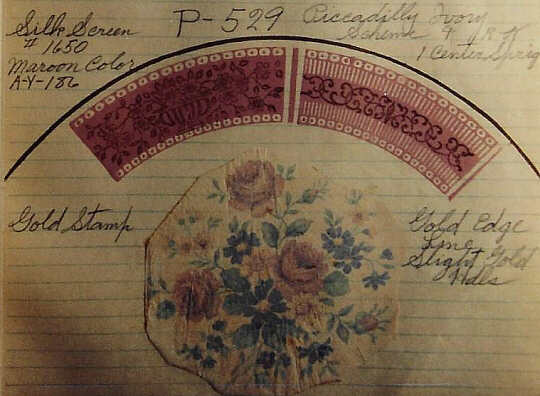 Silk Screen
# 1650
Maroon Color
A-Y-186
P-529
Piccadilly Ivory
Scheme
1 Center Sprig
Gold Stamp
Gold Edge
Line
Slight Gold